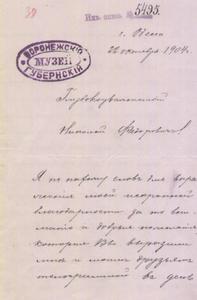 30
Их. инв. № 5495.
ВОРОНЕЖСКІЙ
МУЗЕЙ
ГУБЕРНСКІЙ
г. Одесса
26 октября 1904 г.
Глубокоуважаемый
Николай Федорович,
Я не нахожу слов для выра-
женія моей искренной
благодарности за то
и добрыя пожеланія
которыя Вы выразили
мнѣ и моимъ друзьямъ
телеграммой въ день